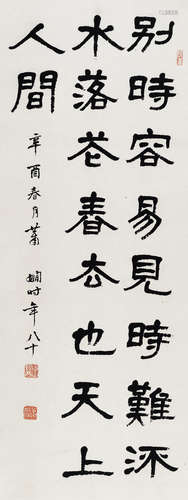 别時容易見時難流
水落花春去也天上
人間
辛酉春月蕭嫻时年八十